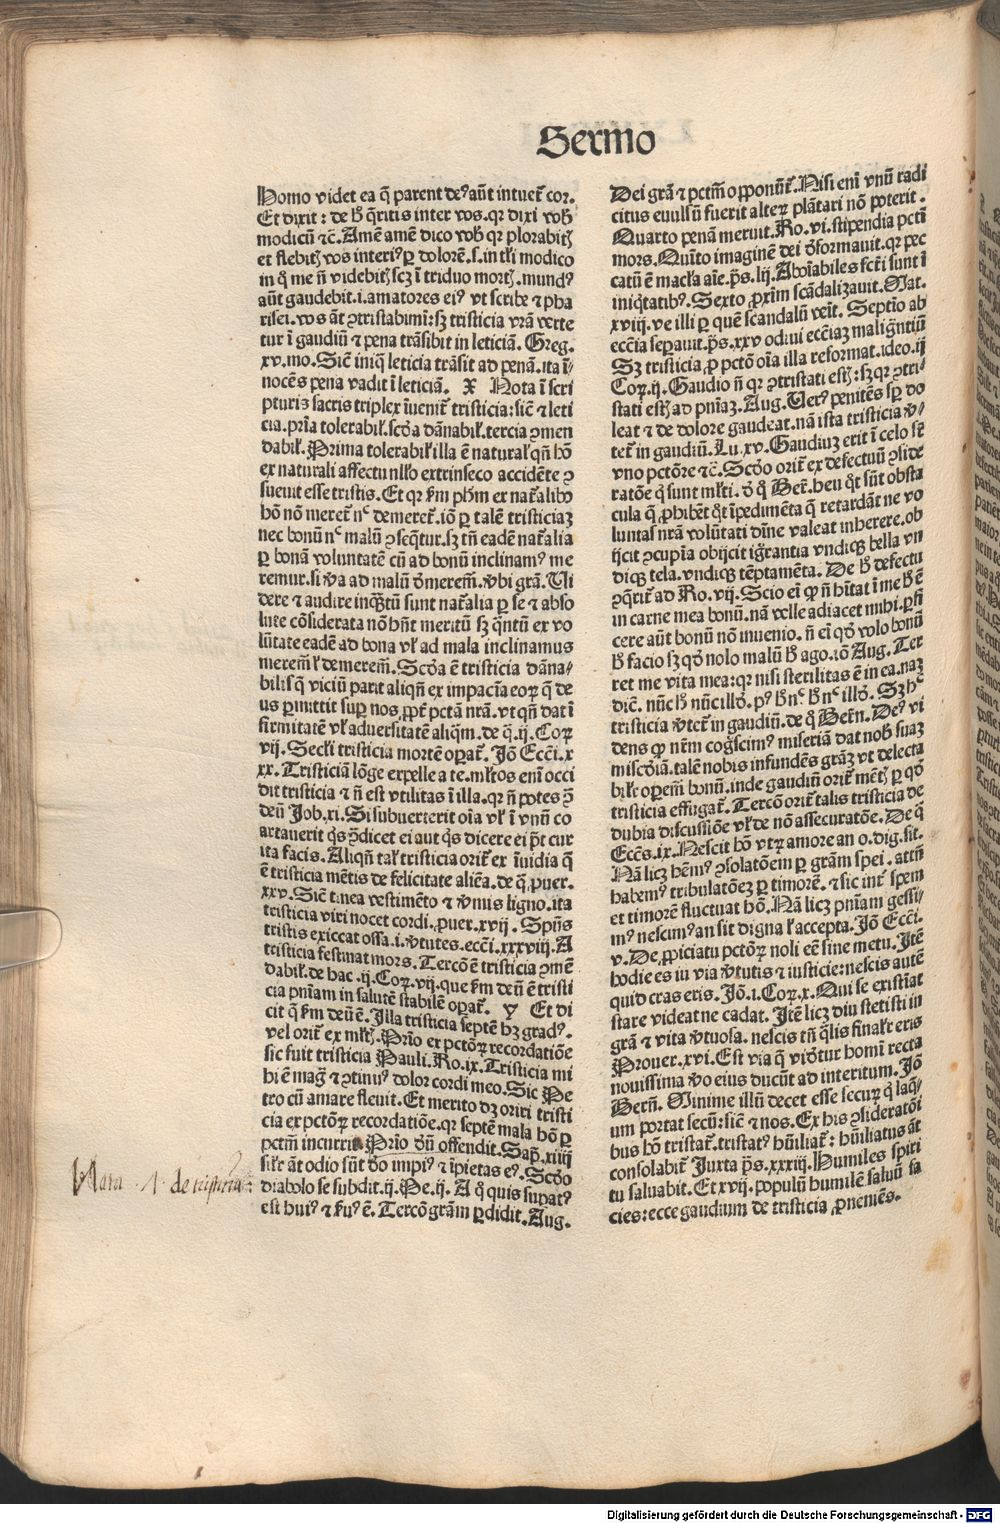 Sermo
Homo videt ea q̄ parent de⁹ aūt intuet̄ cor.
Et dixit: de h̄ q̄ritis inter vos.qr dixi vob̄
modicū ⁊c̄.Amē amē dico vob̄ qr plorabit͛
et flebit͛ vos interi⁹ p̲ dolorē.s.in tr̄i modico
in q̊ me n̄ videbit͛ scꝫ ī triduo mort͛.mund⁹
aūt gaudebit.i.amatores ei⁹ vt scribe ⁊ pha
risei.vos āt ꝯtristabimī:sꝫ tristicia vr̄a verte
tur ī gaudiū ⁊ pena trāsibit in leticiā. Greg.
xv.mo.Sic̄ iniq̄ leticia trāsit ad penā.ita ī-
nocēs pena vadit ī leticiā. X Nota ī scri
pturis sacris triplex īuenit̄ tristicia:sic̄ ⁊ leti
cia.pr̄ia tolerabil̄.scd̄a dānabil̄.tercia ꝯmen
dabil̄.Prima tolerabil̄ illa ē natural̄ qn̄ hō
ex naturali affectu nll̄o extrinseco accidēte ꝯ
sueuit esse tristis.Et qr ẜm ph̄m ex nat̄alibꝰ
hō nō meret̄ nᶜ demeret̄.iō p̲ talē tristiciaꝫ
nec bonū nᶜ malū ꝯseq̄tur.sꝫ tn̄ eadē nat̄alia
p̲ bonā voluntatē cū ad bonū inclinam⁹ me
remur.si v̄a ad malū d̄merem̄.v̄bi grā.Vi
dere ⁊ audire inq̄ꝫtū sunt nat̄alia p̲ se ⁊ abso
lute cōsiderata nō hn̄t meritū sꝫ q̄ntū ex vo
lūtate eadē ad bona vl̄ ad mala inclinamus
merem̄ l̄ demerem̄.Scd̄a ē tristicia dāna-
bilis q̄ viciū parit aliqn̄ ex impaciā eoꝝ q̄ de
us p̲mittit sup̲ nos ꝓpt̄ pctā nr̄a.vt qn̄ dat ī
firmitatē vl̄ aduersitatē aliqm̄.de q̄.ij.Coꝝ
vij.Secl̄i tristicia mortē op̲at̄. Jō Ecci.x
xx.Tristiciā lōge expelle a te.ml̄tos eni occi
dit tristicia ⁊ n̄ est vtilitas ī illa.qr n̄ potes ꝯ̄
deū Job.xi.Si subuerterit oīa vl̄ ī vnū co
artauerit q̄s ꝯ̄dicet ei aut q̄s dicere ei p̄t cur
ita facis.Aliqn̄ tal̄ tristicia orit̄ ex īuidia q̄
ē tristicia mētis de felicitate aliēa.de q̄.puer.
xxv.Sic̄ tinea vestimēto ⁊ v̄mis ligno.ita
tristicia viri nocet cordi.puer.xvij. Spūs
tristis exiccat ossa.i.v̄tutes.ecci.xxxviij.A
tristicia festinat mors. Terco ē tristicia ꝯmē
dabil̄.de hac.ij.Coꝝ.vij.que ẜm deū ē tristi
cia pn̄iam in salutē stabilē op̲at̄. Y Et di
cit q̄ ẜm deū ē.Illa tristicia septē hꝫ grad⁹.
vel orit̄ ex ml̄t͛.Pr̄io ex pctōꝝ recordatiōe
sic fuit tristicia Pauli.Ro.ix.Tristicia mi
hi ē mag̃ ⁊ ꝯtinu⁹ dolor cordi meo.Sic Pe
tro cū amare fleuit.Et merito dꝫ oriri tristi
cia ex pctōꝝ recordatiōe.qr septē mala hō p̲
pctm̄ incurrit.Pr̄io dn̄ offendit.Sap̄.xiiij
sil̄r āt odio sūt do̅ impi⁹ ⁊ īpietas e⁹. Scd̄o
diabolo se subdit.ij.Pe.ij. A q̊ quis supat⁹
est hui⁹ ⁊ ẜu⁹ ē. Tercō grām p̲didit.Aug.
Nata .1. de tristicia:
Dei grā ⁊ pctm̄ opponūt̄.Nisi eni vnū radi
citus euulsū fuerit alteꝝ plātari nō poterit.
Quarto penā meruit.Ro.vi.stipendia pcti
mors.Quīto imaginē dei d̄formauit.qr pec
catū ē macl̄a aīe.ps̄.lij.Aboīabiles fct̄i sunt ī
iniq̄tatib⁹.Sexto prox̄im scādalizauit.Mat.
xviij.ve illi p̲ quē scandalū veīt. Septīo ab
ecc̄ia sep̲auit.ps̄.xxv odiui ecc̄iaꝫ maligntiū
Sꝫ tristicia ꝓ pctō oīa illa reformat.ideo.ij
Coꝝ.ij.Gaudio n̄ qr ꝯtristati est͛:sꝫ qr ꝯtri-
stati est͛ ad pn̄iaꝫ.Aug.Ver⁹ penitēs sp̲ do
leat ⁊ de dolore gaudeat.nā ista tristicia v̄-
tet̄ in gaudiū.Lu.xv.Gaudiuꝫ erit ī celo sr̄
vno pctōre ⁊c̄.Scd̄o orit̄ ex defectuū ꝯside
ratōe q̊ sunt ml̄ti.d̄ q̊ Ber̄.heu q̊t sūt obsta
cula q̄ ꝓhibēt q̊t īpedimēta q̄ retardāt ne vo
luntas nr̄a volūtati dīne valeat inherere.ob
ijcit ꝯcupīa obijcit igrātia vndiqꝫ bella vn
diqꝫ tela.vndiqꝫ tēptamēta. De h̄ defectu
ꝯq̄rit̄ ad Ro.vij.Scio ei ꝙ n̄ hītat ī me h̄ ē
in carne mea bonū.nā velle adiacet mihi.p̲fi
cere aūt bonū nō inuenio.n̄ ei qd̄ volo bonū
h̄ facio sꝫ qd̄ nolo malū h̄ ago.iō Aug. Ter
ret me vita mea:qr nisi sterilitas ē in ea.naꝫ
dic̄.nūc h̄ nūc illd̄.p⁹ h̄ nᶜ h̄ nᶜ illd̄. Sꝫ hᶜ
tristicia v̄tet̄ in gaudiū.de q̊ Bern̄.De⁹ vi
dens ꝙ nēm cog̃scim⁹ miseriā dat nob̄ suaꝫ
miscd̄iā.talē nobis infundēs grāꝫ vt delecta
bil̄r op̲em̄ bonū.inde gaudiū orit̄ mēt͛ p̲ qd̄
tristicia effugat̄.Tercō orit̄ talis tristicia de
dubia discussiōe vl̄ de nō assecuratōe.De q̄
Ecc̄s.ix.Nescit hō vtꝝ amore an o.dig.sit.
Nā licꝫ hēm⁹ ꝯsolatōem p̲ grām spei . attn̄
habem⁹ tribulatōeꝫ p̲ timorē.⁊ sic int̄ spem
et timorē fluctuat hō.Nā licꝫ pn̄iam gessi-
m⁹ nescim⁹ an sit digna l̄ accepta.Jō Ecci.
v.De ꝓpiciatu pctōꝝ noli eē sine metu.Jtē
hodie es iu via v̄tutis ⁊ iusticie:nescis autē
quid cras eris. Jō.i.Coꝝ.x.Qui se existīat
stare videat ne cadat. Jtē licꝫ diu stetisti in
grā ⁊ vita v̄tuosa. nescis tn̄ q̄lis final̄r eris
Prouer.xvi.Est via q̄ vid̄tur homī recta
nouissima v̄o eius ducūt ad interitum. Jō
Bern̄. Minime illū decet esse secuꝝ q̊ laq̄-
um portat secū:sic̄ ⁊ nos.Ex his ꝯsideratōi
bus hō tristat̄.tristat⁹ hūiliat̄: hūiliatus āt
consolabit̄ Juxta ps̄.xxxiij.Humiles spiri
tu saluabit.Et xvij.populū humilē saluū fa
cies:ecce gaudium de tristicia ꝓneniēs.
Digitalisierung gefördert durch die Deutsche Forschungsgemeinschaft - DFG